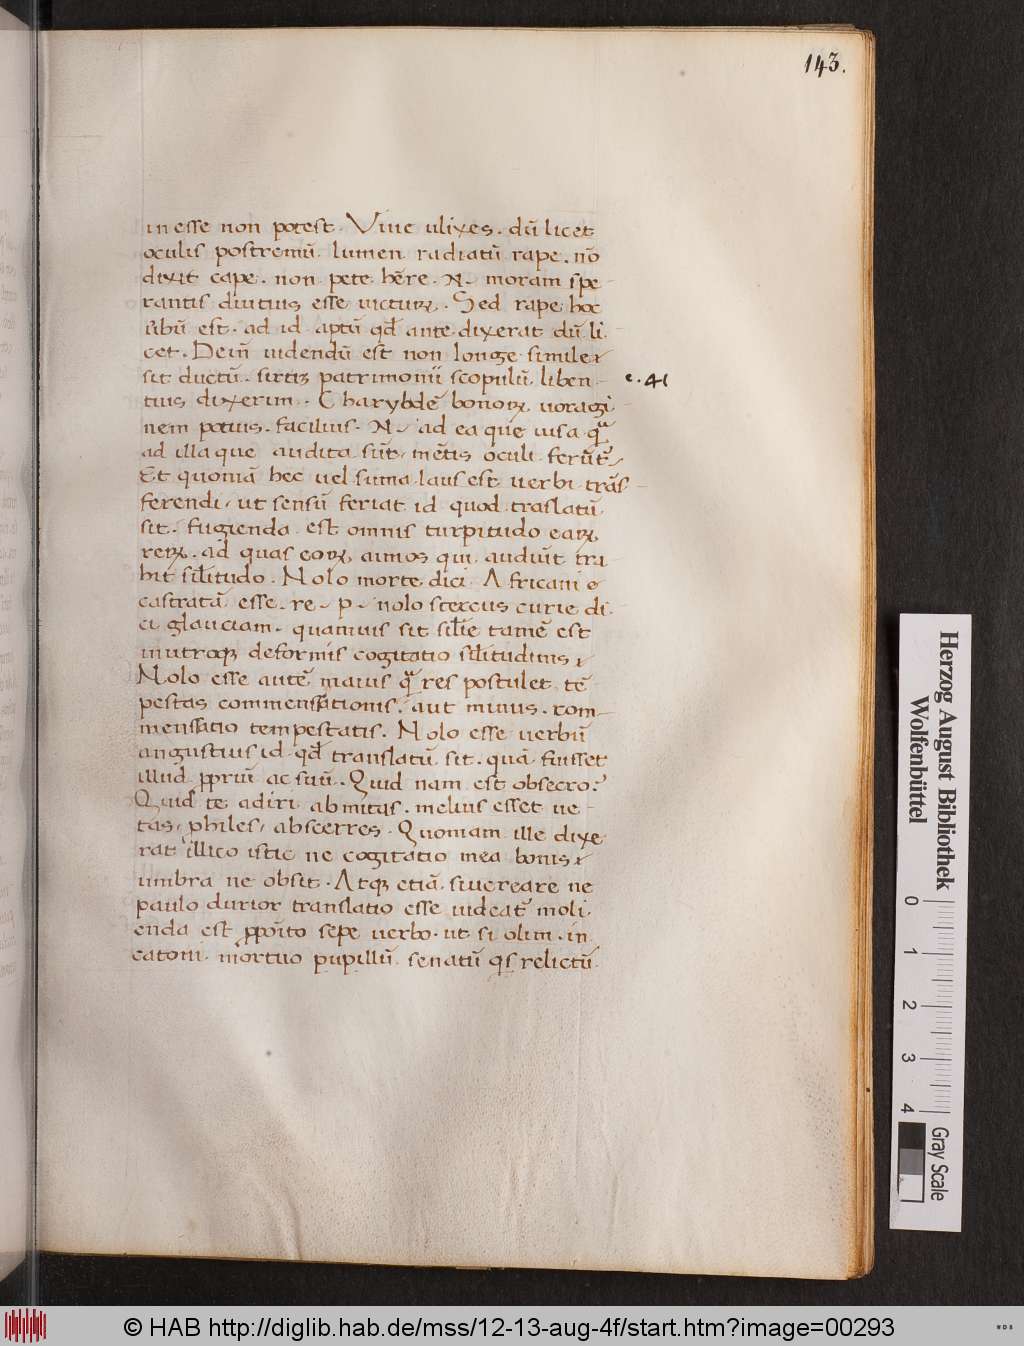 143.
in esse non potest. Viue ulixes. dū licet
oculis postremū. lumen radiatū rape. nō
dixit cape. non pete. hēre. N. moram spe
rantis diutius esse uicturꝝ. Sed rape hoc
ubū est. ad id aptū qđ ante dixerat dū li
cet. Dein̄ uidendū est non longe simile
sit ductū. sirtiꝫ patrimonii scopulū. liben
c. 41
tius dixerim. Charybdē bonoꝝ uoragi
nem potius. facilius. N. ad ea que uisa qᷓ
ad illa que audita sūt mētis oculi ferūt᷑
Et quoniā hec uel sūma laus est uerbi trās
ferendi, ut sensū feriat id quod traslatū
sit. fugienda est omnis turpitudo eaꝝ
reꝝ. ad quas eoꝝ aimos qui audiūt tra
hit sil̄itudo. Nolo morte dici Africani
castratā esse. re. p. nolo stercus curie di
ci glauciam. quamuis sit sil̄e tamē est
in utroqꝫ deformis cogitatio sil̄itudinis
Nolo esse autē maius qᷓ res postulet tē
pestas commensationis. aut minus. com
mensatio tempestatis. Nolo esse uerbū
angustius id qđ translatū sit. quā fuisset
illud ꝓpriū ac suū. Quid nam est obsecro?
Quid te adiri abnutas. melius esset ue
tas, philes, abscerres. Quoniam ille dixe
rat illico istic ne cogitatio mea bonis
umbra ne obsit. Atqꝫ etiā. si uereare ne
paulo durior translatio esse uideat᷑ moli
enda est ꝓpōito sepe uerbo. ut si olim. in
catoni mortuo pupillū senatū qͥs relictū
Herzog August Bibliothek
Wolfenbüttel
0 1 2 3 4
Gray Scale
© HAB http://diglib.hab.de/mss/12-13-aug-4f/start.htm?image=00293